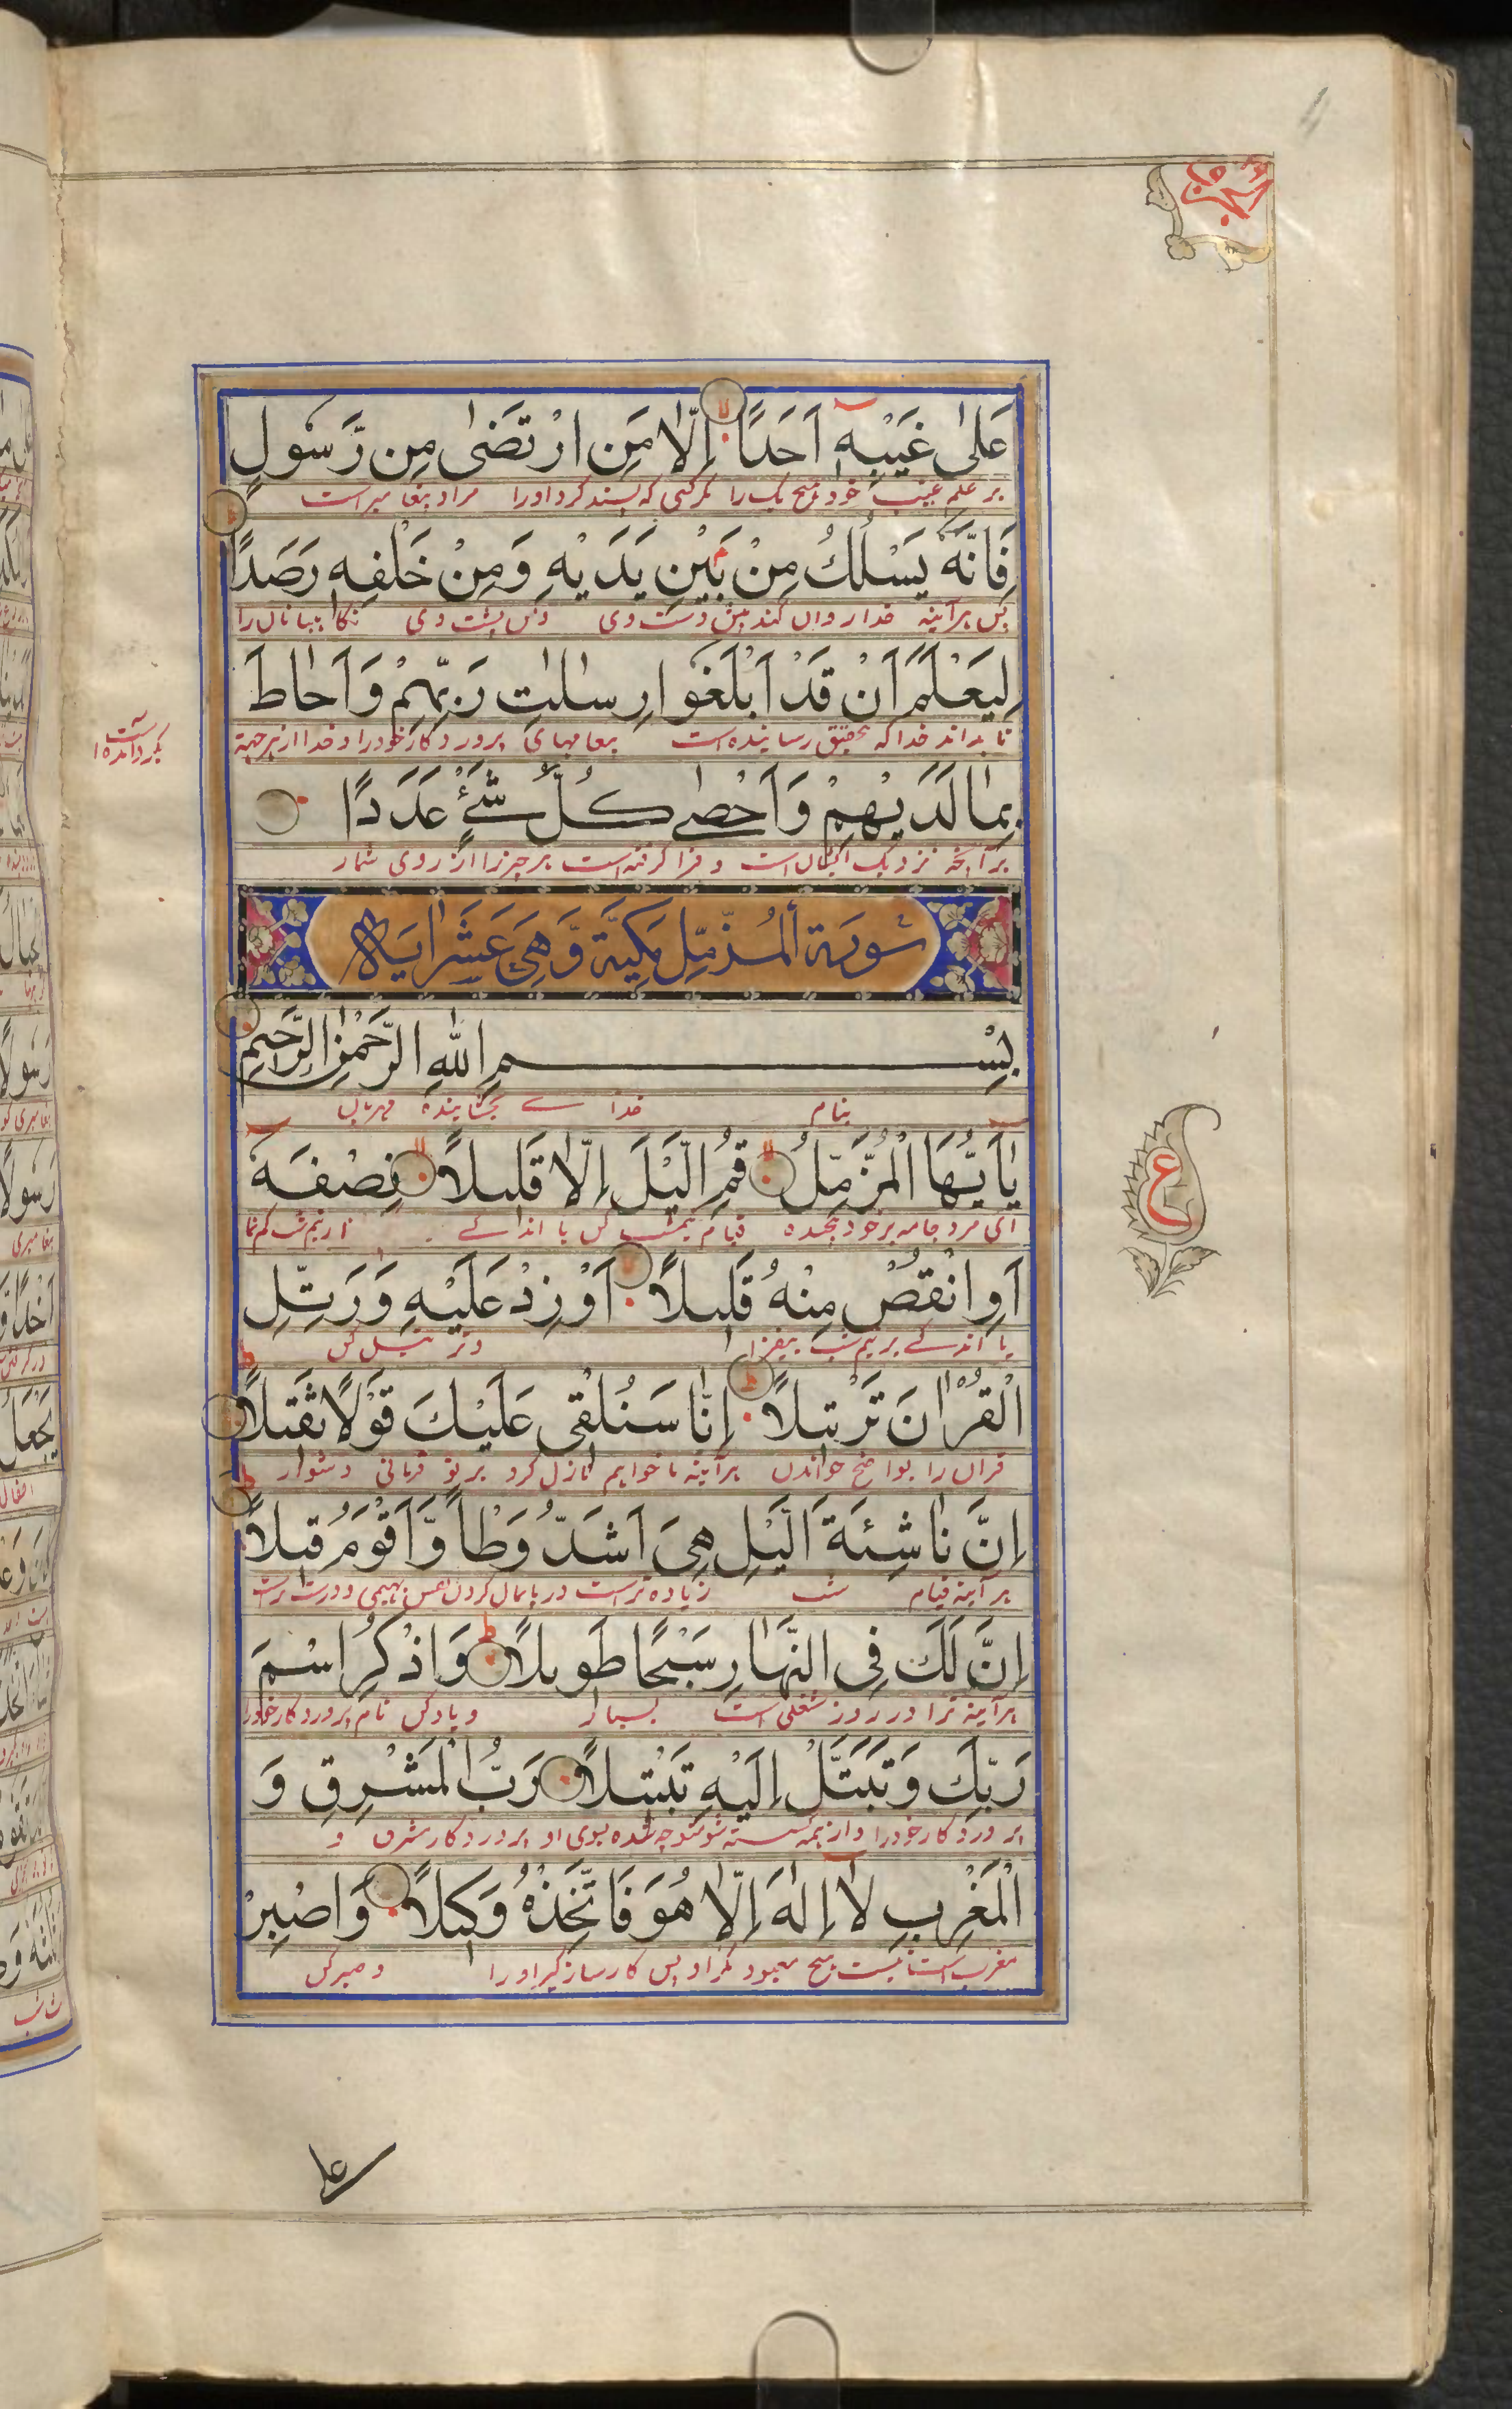 عَلىٰ غَيْبِهٖ اَحَدًا اِلَّا مَنِ ارْتَضٰى مِن رَّسُولٍ
بر علم غیب خود هیچ یک را مگر کسی که پسند کرد او را مراد پیغامبر است
فَاِنَّهٗ يَسْلُكُ مِنْ بَيْنِ يَدَيْهِ وَمِنْ خَلْفِهٖ رَصَدًا
پس هر آینه خدا روان کند پیش دست وی و پس پشت وی نگاهبانان را
لِيَعْلَمَ اَنْ قَدْ اَبْلَغُوا رِسٰالٰاتِ رَبِّهِمْ وَاَحٰاطَ
تا بداند خدا که بتحقیق رسانیده است پیغامهای پروردگار خود را و خدا از هر جهة
بِمٰا لَدَيْهِمْ وَاَحْصٰى كُلَّ شَىْءٍ عَدَدًا
بر آنچه نزدیک ایشان است و فرا گرفته است هر چیز را از روی شمار
سُورَة اَلمُزَّمِّلِ مَكِيَّة وَّهِىَ عَشَرَ اٰيَاة
بِسْمِ اللّٰهِ الرَّحْمٰنِ الرَّحِيمِ
بنام خدا ے بخشاینده مهربان
يٰااَيُّهَا الْمُزَّمِّلُ قُمِ الَّيْلَ اِلَّا قَلِيلًا نِصْفَهٗ
ای مرد جامه بر خود پیچیده قیام شب کن یا اندکے از نیم شب کم نما
اَوِ انْقُصْ مِنْهُ قَلِيلًا اَوْ زِدْ عَلَيْهِ وَرَتِّلِ
یا اندکے بر نیم شب بیفزا و ترتیل کن
الْقُرْاٰنَ تَرْتِيلًا اِنّٰا سَنُلْقِى عَلَيْكَ قَوْلًا ثَقِيلًا
قران را بواضح خواندن هر آینه ما خواهیم نازل کرد بر تو دشوار
اِنَّ نٰاشِئَةَ الَّيْلِ هِىَ اَشَدُّ وَطْاً وَّاَقْوَمُ قِيلًا
هر آینه قیام شب زیاده تر است در پایمال کردن و درست تر است
اِنَّ لَكَ فِى النَّهٰارِ سَبْحًا طَوِيلًا وَاذْكُرِ اسْمَ
هر آینه ترا در روز شغلی است بسیار و یاد کن نام پروردگار خود را
رَبِّكَ وَتَبَتَّلْ اِلَيْهِ تَبْتِيلًا رَبُّ الْمَشْرِقِ وَ
پروردگار خود را و از همه گسسته شو متوجه شده بسوی او پروردگار مشرق و
الْمَغْرِبِ لٰا اِلٰهَ اِلّٰا هُوَ فَاتَّخِذْهُ وَكِيلًا وَاصْبِرْ
مغرب است نیست هیچ معبود مگر او پس کارساز گیر او را و صبر کن
ع
على